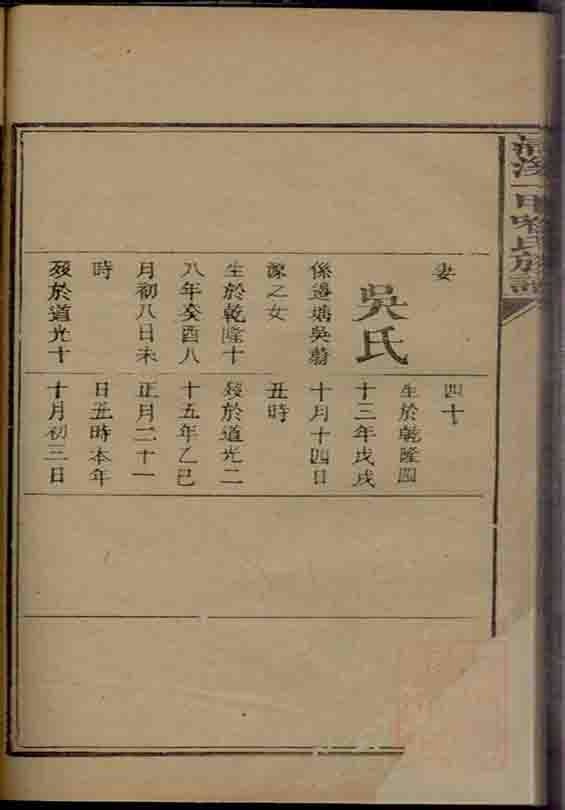 妻
吳氏
係邉塘吳蔚
源之女
生於乾隆十
八年癸酉八
月初八日未
時
歿於道光十
四十
生於乾隆四
十三年戊戌
十月十四日
丑時
歿於道光二
十五年乙巳
正月二十一
日丑時本年
十月初三日